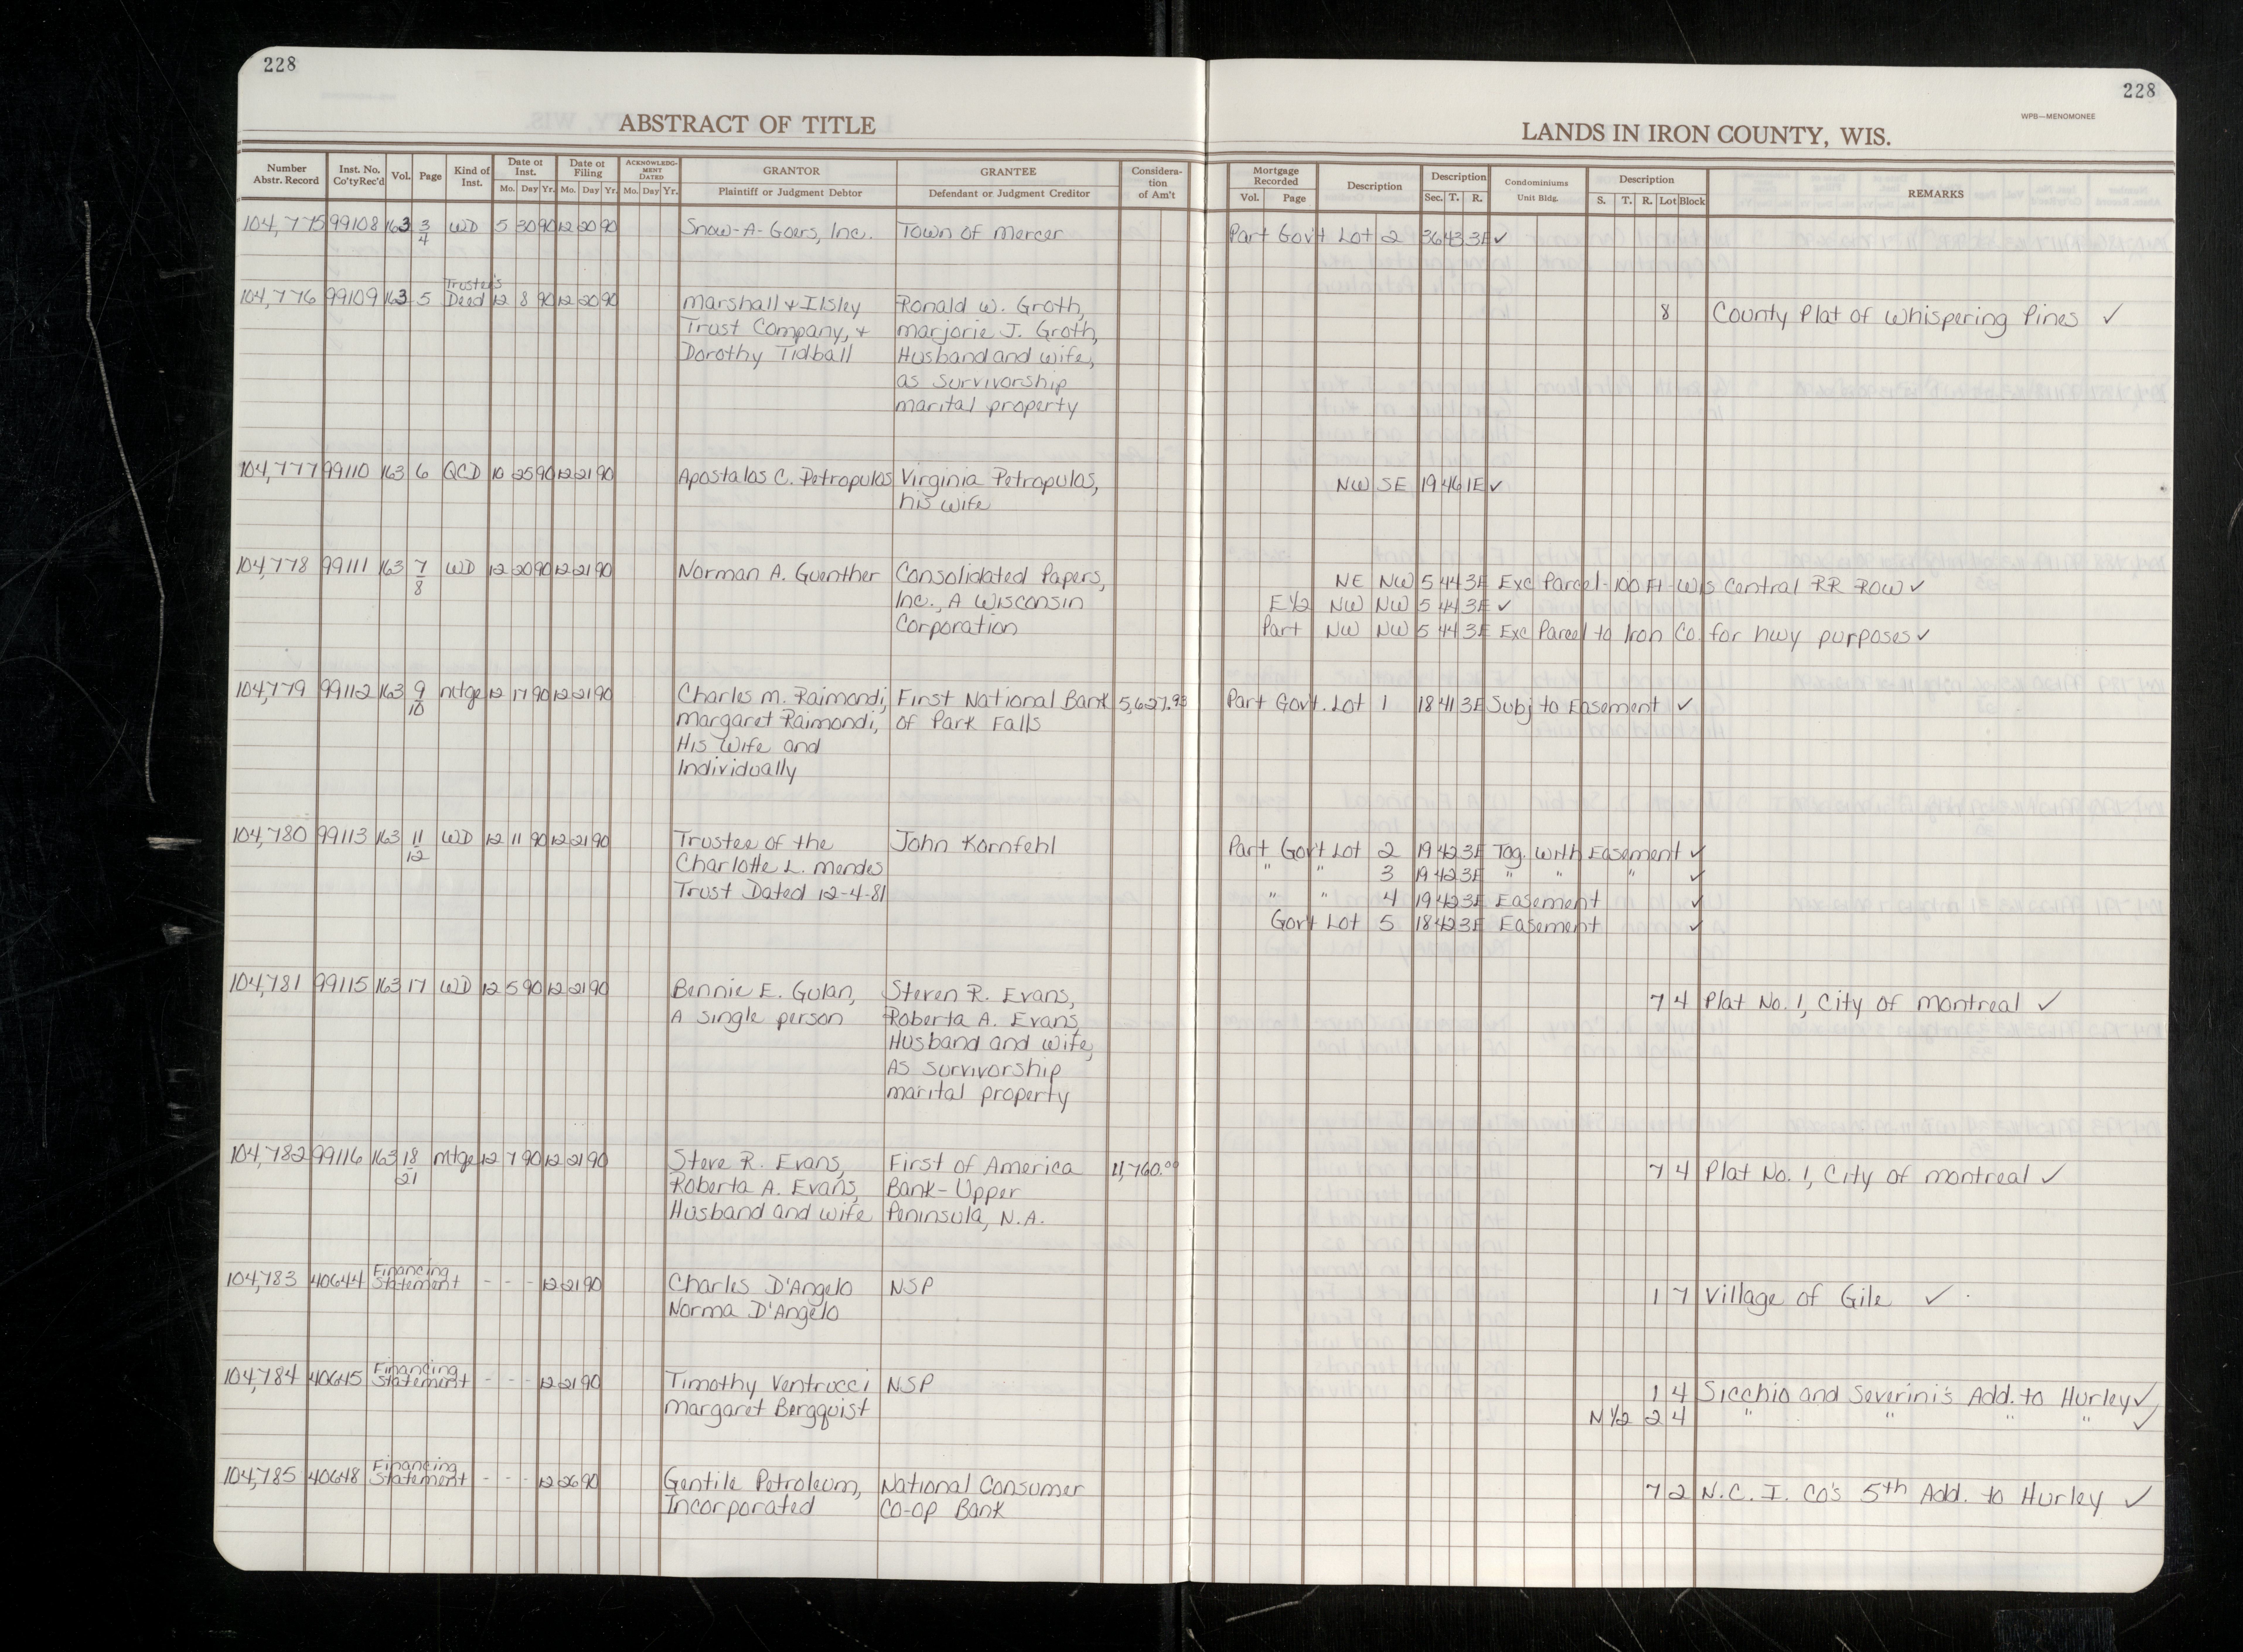 228
228
WPB—MENOMONEE
ABSTRACT OF TITLE
LANDS IN IRON COUNTY, WIS.
Number Abstr. Record | Inst. No. Co'ty Rec'd | Vol. | Page | Kind of Inst. | Date of Inst. Mo. Day Yr. | Date of Filing Mo. Day Yr. | ACKNOWLEDGMENT DATED Mo. Day Yr. | GRANTOR Plaintiff or Judgment Debtor | GRANTEE Defendant or Judgment Creditor | Consideration of Am't | Mortgage Recorded Vol. Page | Description | Description Sec. T. R. | Condominiums Unit Bldg. | Description S. T. R. Lot Block | REMARKS
104,775 99108 163 3/4 WD 5 30 90 12 20 90 Snow-A-Goers, Inc. Town of Mercer Part Gov't Lot 2 36 43 3E ✓
104,776 99109 163 5 Trustee's Deed 12 8 90 12 20 90 Marshall & Ilsley Ronald W. Groth, 8 County Plat of Whispering Pines ✓
Trust Company, & Marjorie J. Groth,
Dorothy Tidball Husband and wife,
as survivorship
marital property
104,777 99110 163 6 QCD 10 25 90 12 21 90 Apostalos C. Petropulos Virginia Petropulos, NW SE 19 46 1E ✓
his wife
104,778 99111 163 7/8 WD 12 20 90 12 21 90 Norman A. Guenther Consolidated Papers, NE NW 5 44 3E Exc Parcel-100 Ft-Wis Central RR ROW ✓
Inc., A Wisconsin E½ NW NW 5 44 3E ✓
Corporation Part NW NW 5 44 3E Exc Parcel to Iron Co. for hwy purposes ✓
104,779 99112 163 9/10 Mtge 12 17 90 12 21 90 Charles M. Raimondi, First National Bank 5,627.93 Part Govt. Lot 1 18 41 3E Subj to Easement ✓
Margaret Raimondi, of Park Falls
His Wife and
Individually
104,780 99113 163 11/12 WD 12 11 90 12 21 90 Trustee of the John Kornfehl Part Gov't Lot 2 19 42 3E Tog. With Easement ✓
Charlotte L. Mendes " " 3 19 42 3E " " " ✓
Trust Dated 12-4-81 " " 4 19 42 3E Easement ✓
Gov't Lot 5 18 42 3E Easement ✓
104,781 99115 163 17 WD 12 5 90 12 21 90 Bennie E. Gulan, Steven R. Evans, 7 4 Plat No. 1, City of Montreal ✓
A single person Roberta A. Evans,
Husband and Wife,
As Survivorship
marital property
104,782 99116 163 18/21 Mtge 12 7 90 12 21 90 Steve R. Evans, First of America 11,760.00 7 4 Plat No. 1, City of Montreal ✓
Roberta A. Evans, Bank-Upper
Husband and wife Peninsula, N.A.
104,783 40644 Financing Statement - - - 12 21 90 Charles D'Angelo NSP 1 7 Village of Gile ✓
Norma D'Angelo
104,784 40645 Financing Statement - - - 12 21 90 Timothy Ventrucci NSP 1 4 Sicchio and Severini's Add. to Hurley ✓
Margaret Bergquist N½ 2 4 " " " " ✓
104,785 40648 Financing Statement - - - 12 26 90 Gentile Petroleum, National Consumer 7 2 N.C.I. Co's 5th Add. to Hurley ✓
Incorporated Co-op Bank